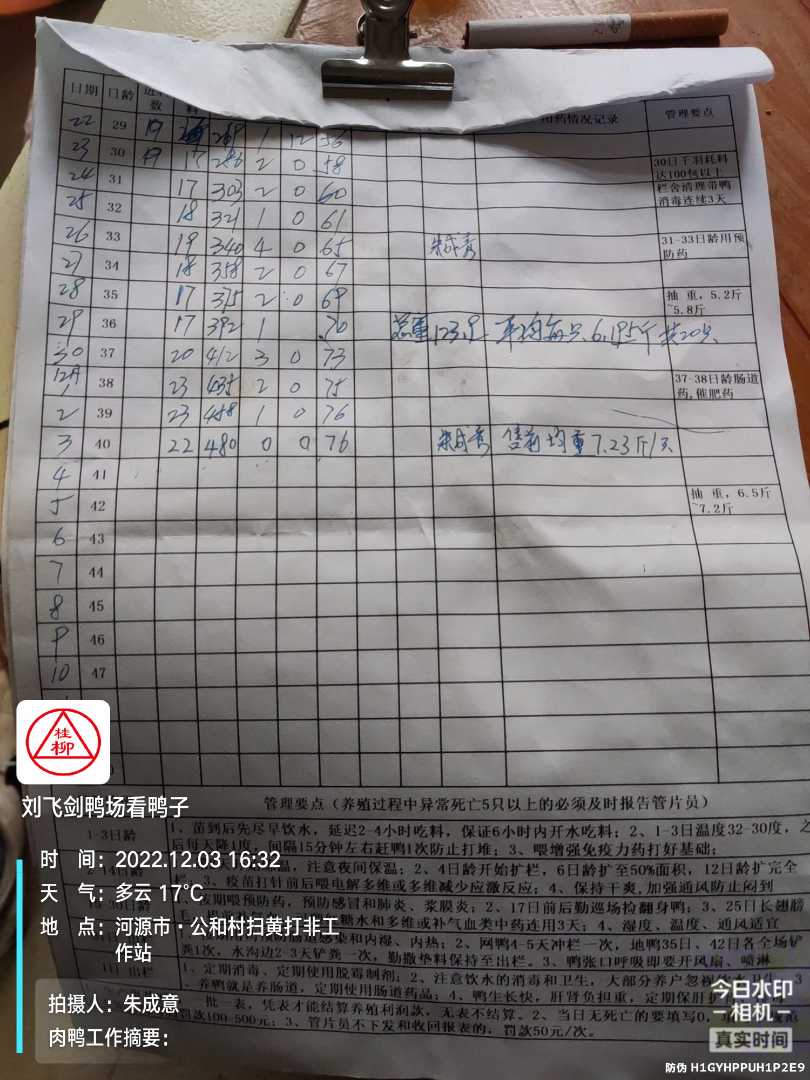 日期 日龄 数 料 用药情况记录 管理要点
22 29 19 269 1 12 56
23 30 19 17 286 2 0 58 30日千羽耗料达100包以上
24 31 17 303 2 0 60 栏舍清理带鸭消毒连续3天
25 32 18 321 1 0 61
26 33 19 340 4 0 65 31-33日龄用预防药
27 34 18 358 2 0 67
28 35 17 375 2 0 69 抽 重，5.2斤~5.8斤
29 36 17 392 1 70 总重123.9 平均每只6.195斤 共20只
30 37 20 412 3 0 73
12月1 38 23 435 2 0 75 37-38日龄肠道药,催肥药
2 39 23 458 1 0 76
3 40 22 480 0 0 76 售前均重7.23斤/只
4 41
5 42 抽 重，6.5斤~7.2斤
6 43
7 44
8 45
9 46
10 47
管理要点（养殖过程中异常死亡5只以上的必须及时报告管片员）
1-3日龄 1、苗到后先尽早饮水，延迟2-4小时吃料，保证6小时内开水吃料；2、1-3日温度32-30度，之
后每天降1度；间隔15分钟左右赶鸭1次防止打堆；3、喂增强免疫力药打好基础；
注意夜间保温；2、4日龄开始扩栏，6日龄扩至50%面积，12日龄扩完全
栏；3、疫苗打针前后喂电解多维或多维减少应激反应；4、保持干爽,加强通风防止闷到
按期喂预防药，预防感冒和肺炎、浆膜炎；2、17日前后勤巡场捡翻身鸭；3、25日长翅膀
糖水和多维或补气血类中药连用3天；4、湿度、温度、通风适宜
肠道感染和内湿、内热；2、网鸭4-5天冲栏一次，地鸭35日、42日各全场铲
粪1次，水沟边2-3天铲粪一次，勤撒垫料保持至出栏。3、鸭张口呼吸即要开风扇、喷淋
出栏 1、定期消毒、定期使用脱霉制剂；2、注意饮水的消毒和卫生，大部分养户忽视
，养鸭就是养肠道，定期使用肠道药品；4、鸭生长快，肝肾负担重，定期保肝护
一批一表，凭表才能结算养殖利润款，无表不结算。2、当日无死亡的要填写0，
罚款100-500元；3、管片员不下发和收回报表的，罚款50元/次。
桂柳
刘飞剑鸭场看鸭子
时 间：2022.12.03 16:32
天 气：多云 17℃
地 点：河源市·公和村扫黄打非工
作站
拍摄人：朱成意
肉鸭工作摘要：
今日水印
相机
真实时间
防伪 H1GYHPPUH1P2E9